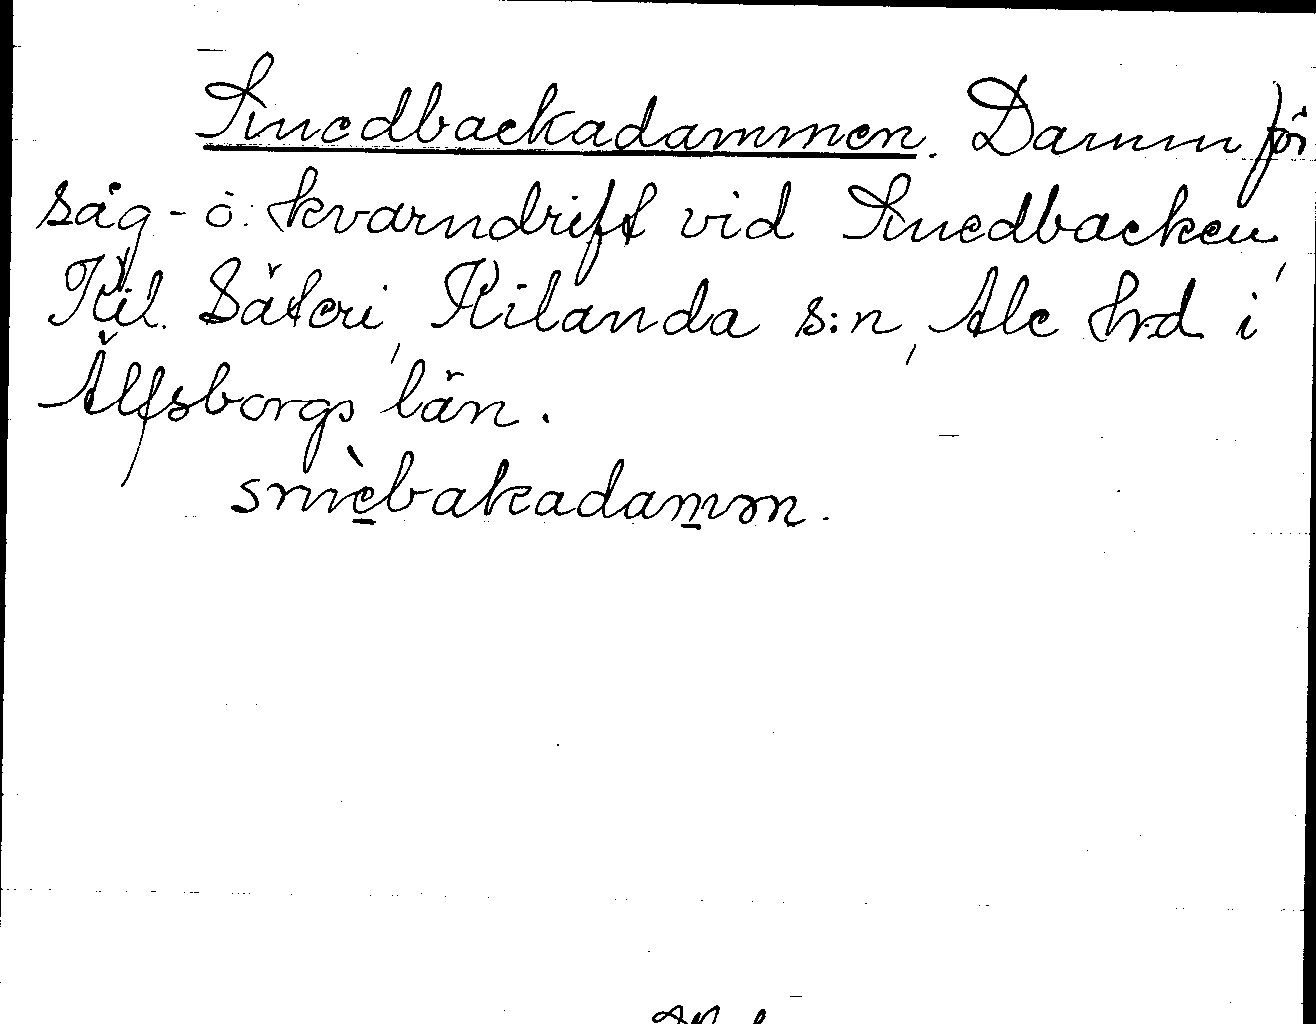 Smedbackadammen. Damm för
såg- o. kvarndrift vid Smedbacken,
Kil. Säteri, Kilanda s:n, Ale hrd i
Älfsborgs län.
smèbakadamən.